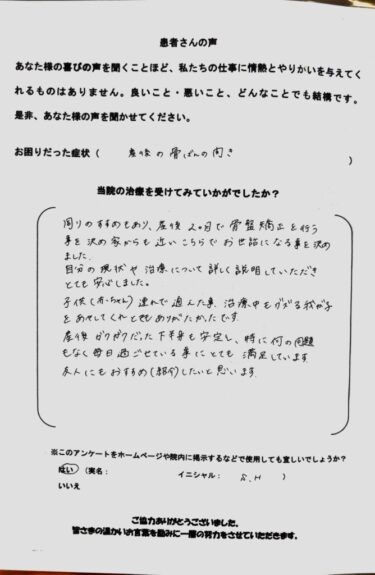 患者さんの声
あなた様の喜びの声を聞くことほど、私たちの仕事に情熱とやりがいを与えてく
れるものはありません。良いこと・悪いこと、どんなことでも結構です。
是非、あなた様の声を聞かせてください。
お困りだった症状（ 産後の骨ばんの開き ）
当院の治療を受けてみていかがでしたか？
周りのすすめもあり、産後2ヶ月で骨盤矯正を行う
事を決め家からも近いこちらでお世話になる事を決め
ました。
自分の現状や治療について詳しく説明していただき
とても安心しました。
子供(赤ちゃん)連れで通えた事、治療中もグズる我が子
をあやしてくれとてもありがたかったです。
産後ガクガクだった下半身も安定し、特に何の問題
もなく毎日過ごせている事にとても満足しています
友人にもおすすめ(紹介)したいと思います。
※このアンケートをホームページや院内に掲示するなどで使用しても宜しいでしょうか？
はい（実名： イニシャル： S.H ）
いいえ
ご協力ありがとうございました。
皆さまの温かいお言葉を励みに一層の努力をさせていただきます。